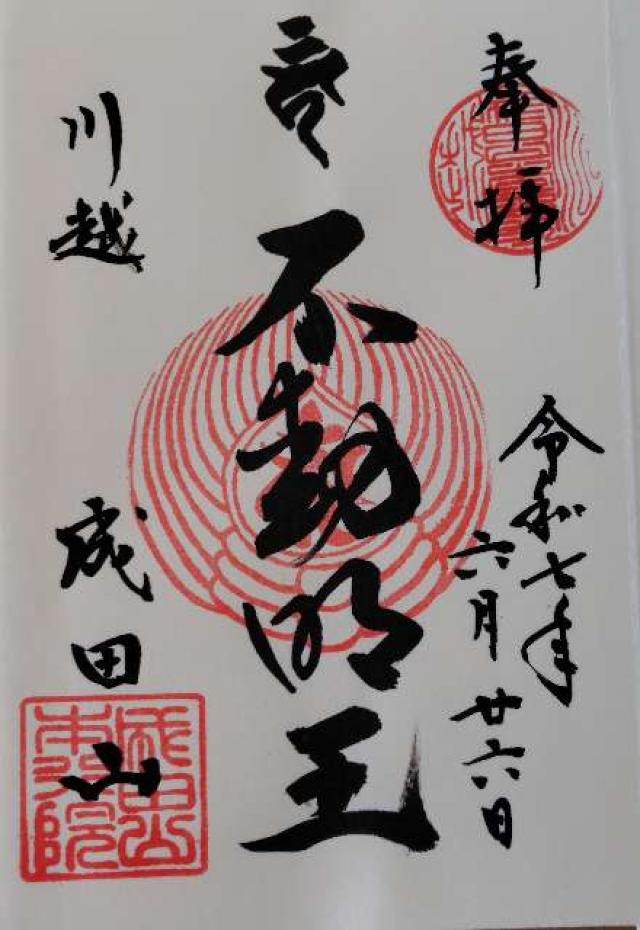 奉拝
令和七年
六月廿六日
不動明王
川越
成田山
成田山
本行院